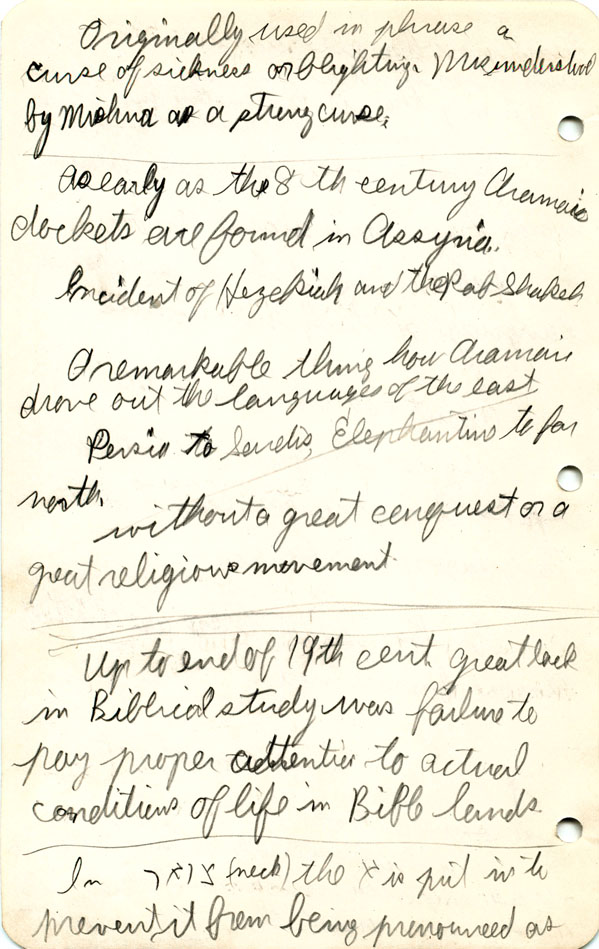 Originally used in phrase a
curse of sickness or blighting. Misunderstood
by Mishna as a strong curse.
As early as the 8 th century Aramaic
dockets are found in Assyria.
Incident of Hezekiah and the Rab Shakeh
A remarkable thing how Aramaic
drove out the languages of the east
Persia to Sardis, Elephantine to far
north,
without a great conquest or a
great religious movement
Up to end of 19th cent. great lack
in Biblical study was failure to
pay proper attention to actual
conditions of life in Bible lands
In צואר (neck) the א is put in to
prevent it from being pronounced as